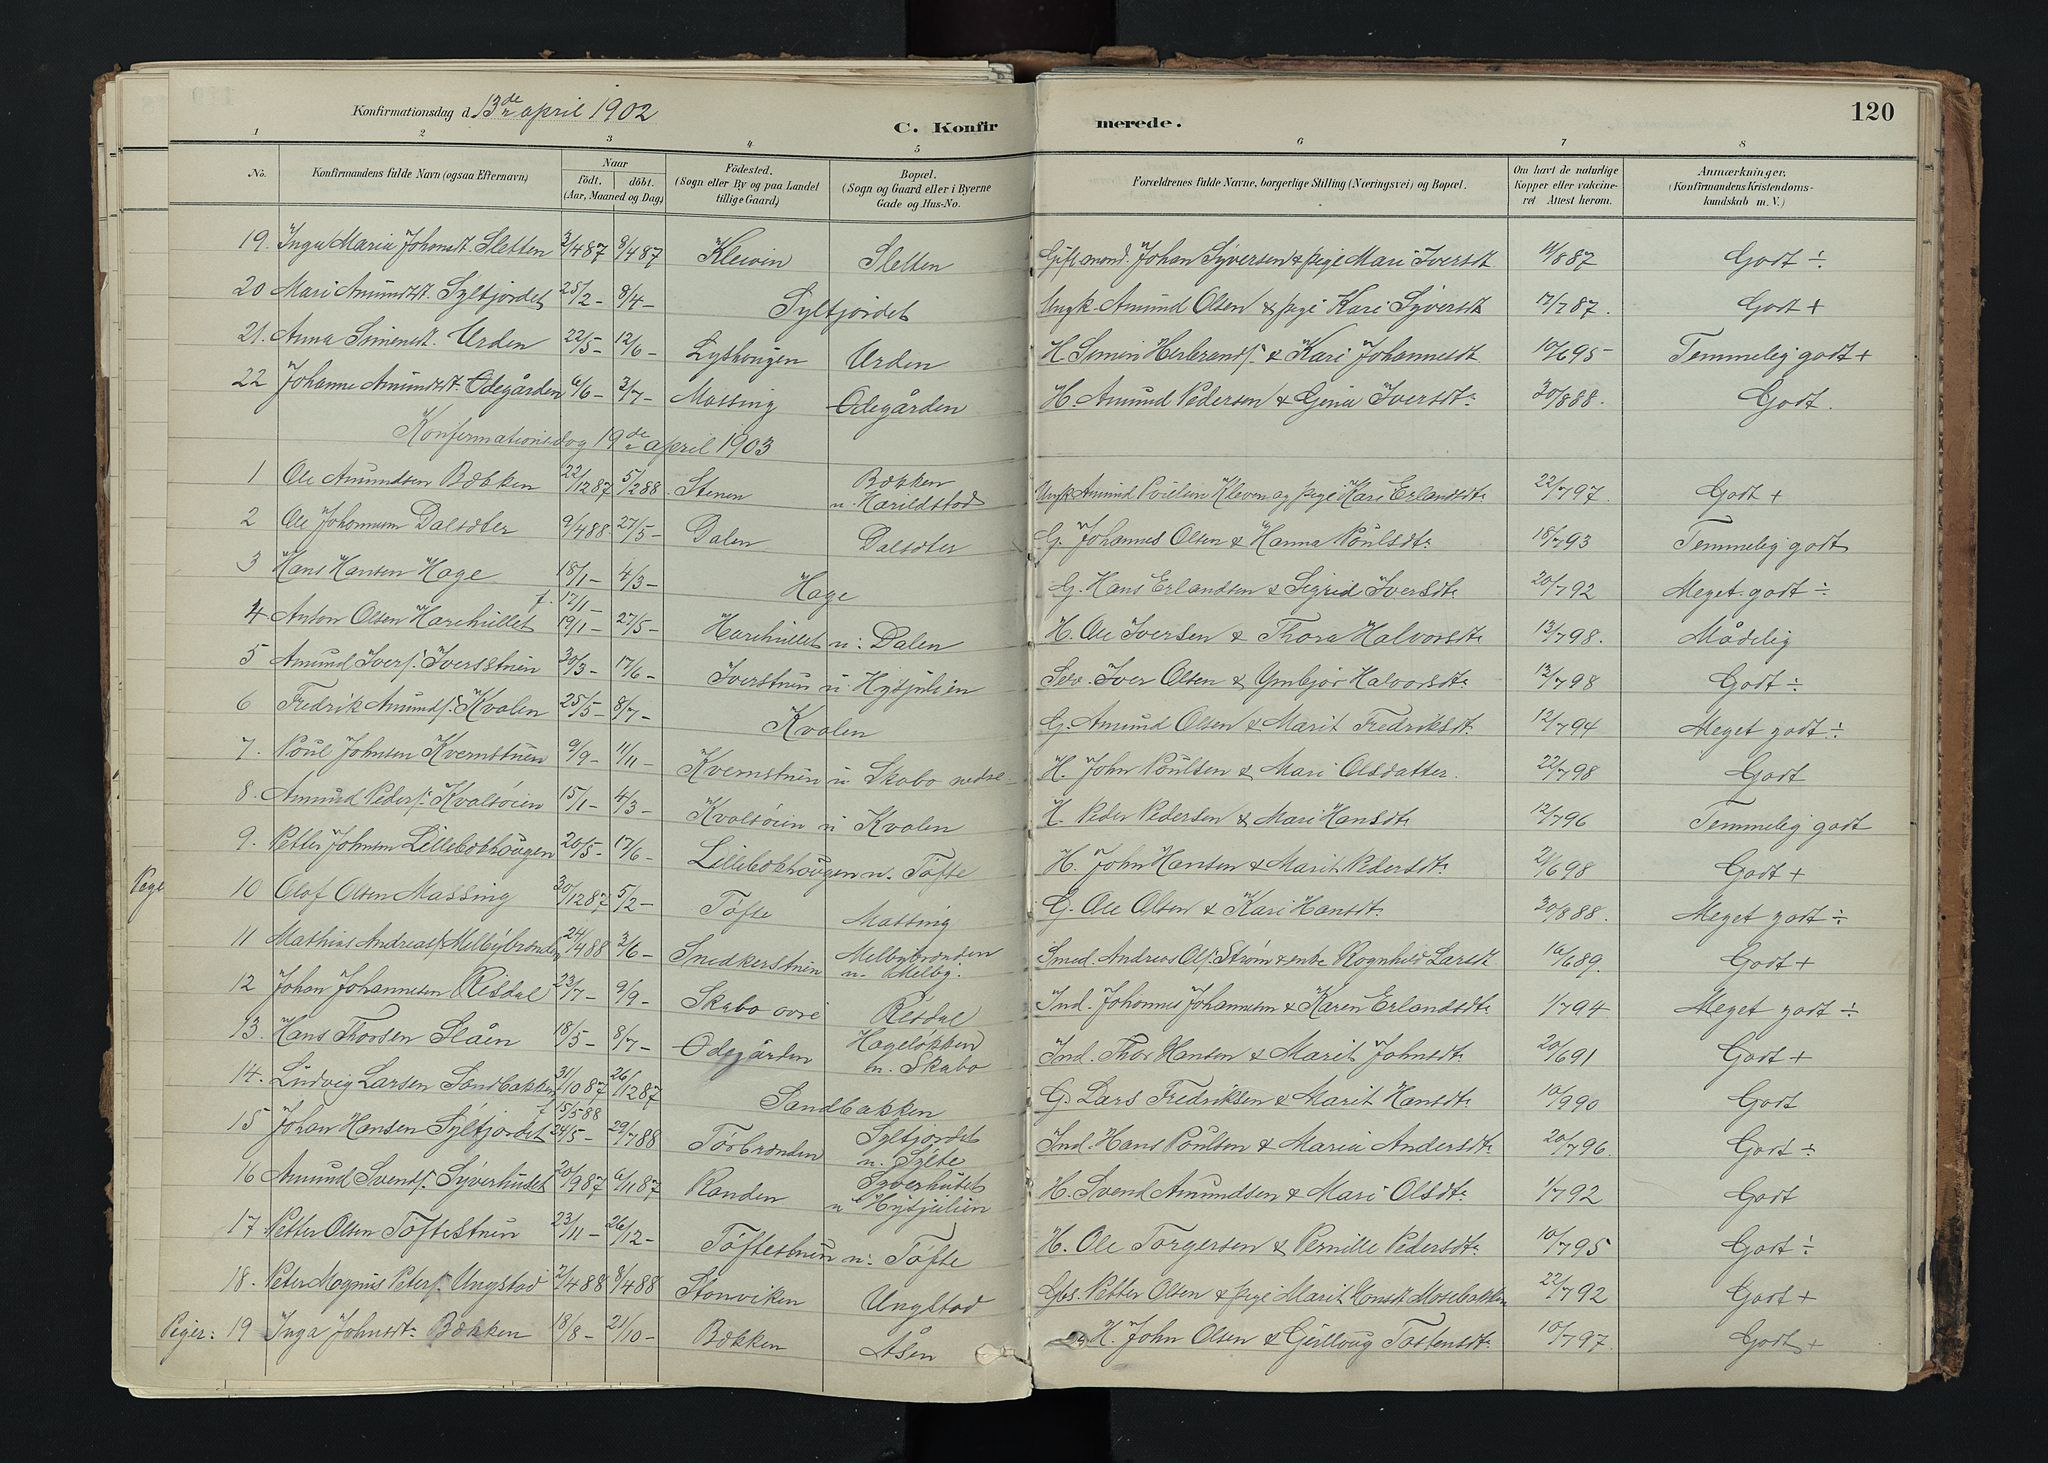 Konfirmationsdag d. 13de april 1902
C. Konfirmerede.
120
1 2 3 4 5 6 7 8
No. Konfirmandens fulde Navn (ogsaa Efternavn) Naar födt. döbt. (Aar, Maaned og Dag) Födested. (Sogn eller By og paa Landet tillige Gaard) Bopæl. (Sogn og Gaard eller i Byerne Gade og Hus-No. Forældrenes fulde Navne, borgerlige Stilling (Næringsvei) og Bopæl. Om havt de naturlige Kopper eller vakcineret Attest herom. Anmærkninger. (Konfirmandens Kristendomskundskab m. V.)
19. Inga Maria Johansdt. Sletten 3/487 8/487 Kleivin Sletten Gift mand. Johan Syversen & pige Mari Iversdt. 11/887 Godt ÷
20 Mari Amundsdt. Syltjordet 25/2- 8/4- Syltjordet Ungk. Amund Olsen & pige Kari Syversdt. 12/787. Godt +
21. Anna Simensdt. Urden 22/5- 12/6- Lyshougen Urden H. Simen Herbrands. & Kari Johannesdt. 10/695- Temmelig godt +
22 Johanne Amundsdt. Ødegården 6/6- 3/7- Massing Ødegården H. Amund Pedersen & Gina Iversdt: 30/888. Godt.
Konfirmationsdag 19de april 1903
1 Ole Amundsen Bækken 22/1287 5/288 Stenen Bækken u. Harildstad Ungk. Amund Kleven og pige Kari Erlandsdt: 22/797. Godt +
2 Ole Johannessen Dalsæter 9/488 27/5- Dalen Dalsæter G. Johannes Olsen & Hanna Poulsdt: 18/793 Temmelig godt
3 Hans Hansen Hage 18/1- 4/3- Hage G. Hans Erlandsen & Sigrid Iversdt: 20/792 Meget godt ÷
4 Anton Olsen Harehullet f. 12/1- 19/1- 27/5- Harehullet u: Dalen H. Ole Iversen & Thora Halvorsdt: 13/798. Mådelig
5 Amund Ivers. Iversstuen 30/3- 17/6- Iverstuen u Hysjulien Selv. Iver Olsen & Ymbjør Halvorsdt: 13/798 Godt ÷
6 Fredrik Amunds. Kvalen 25/5- 8/7- Kvalen G. Amund Olsen & Marit Fredriksdt: 12/794 Meget godt ÷
7. Poul Johnsen Kvernstuen 9/9- 11/11- Kvernstuen u Skabo nedre H. John Poulsen & Mari Olsdatter. 22/798 Godt
8. Amund Peders. Kvalsøien 15/1- 4/3- Kvalsøien u Kvalen H. Peder Pedersen & Mari Hansdt: 12/796 Temmelig godt
9. Petter Johnsen Lillebækhougen 20/5- 17/6- Lillebækhougen u. Tofte H. John Hansen & Marit Pedersdt: 21/698 Godt +
Pige 10 Olaf Olsen Massing 30/1287 5/2- Tofte Massing G. Ole Olsen & Kari Hansdt: 30/888. Meget godt ÷
11 Mathias Andreas. Melbybrænden 24/488 3/6- Snedkerstuen Melbybrænden u. Melby. Smed. Andreas Ols. Strøm & enke Rognhild Larsdt. 16/689. Godt +
12 Johan Johannesen Risdal 22/7- 9/9- Skabo øvre Risdal Ind. Johannes Johannesen & Karen Erlandsdt: 1/794 Meget godt ÷
13. Hans Thorsen Slåen 18/5- 8/7- Ødegården Hageløkken u. Skabo Ind. Thor Hansen & Marit Johnsdt: 20/691 Godt +
14. Ludvig Larsen Sandbakken 31/1087 26/1287 Sandbakken G. Lars Fredriksen & Marit Hansdt: 10/990 Godt
15 Johan Hansen Syltjordet f 15/588 24/5- 29/788 Torbrænden Syltjordet u. Sylte Ind. Hans Poulsen & Maria Andersdt: 20/796. Godt ÷
16 Amund Svends. Syverhuset 20/987 6/1187 Randen Syverhuset u Hysjulien H. Svend Amundsen & Mari Olsdt: 1/792 Godt
17 Petter Olsen Toftestuen 23/11- 26/12- Toftestuen u: Tofte H. Ole Torgersen & Pernille Pedersdt: 10/795 Godt ÷
18. Peter Magnus Peters. Ungstad 2/488 8/488 Storviken Ungstad Petter Olsen & pige Marit Hansdt Mosebakken 22/792 Godt +
Piger: 19 Inga Johnsdt: Bækken 18/8- 21/10- Bækken Åsen H. John Olsen & Gullaug Tostensdt: 10/797. Godt +